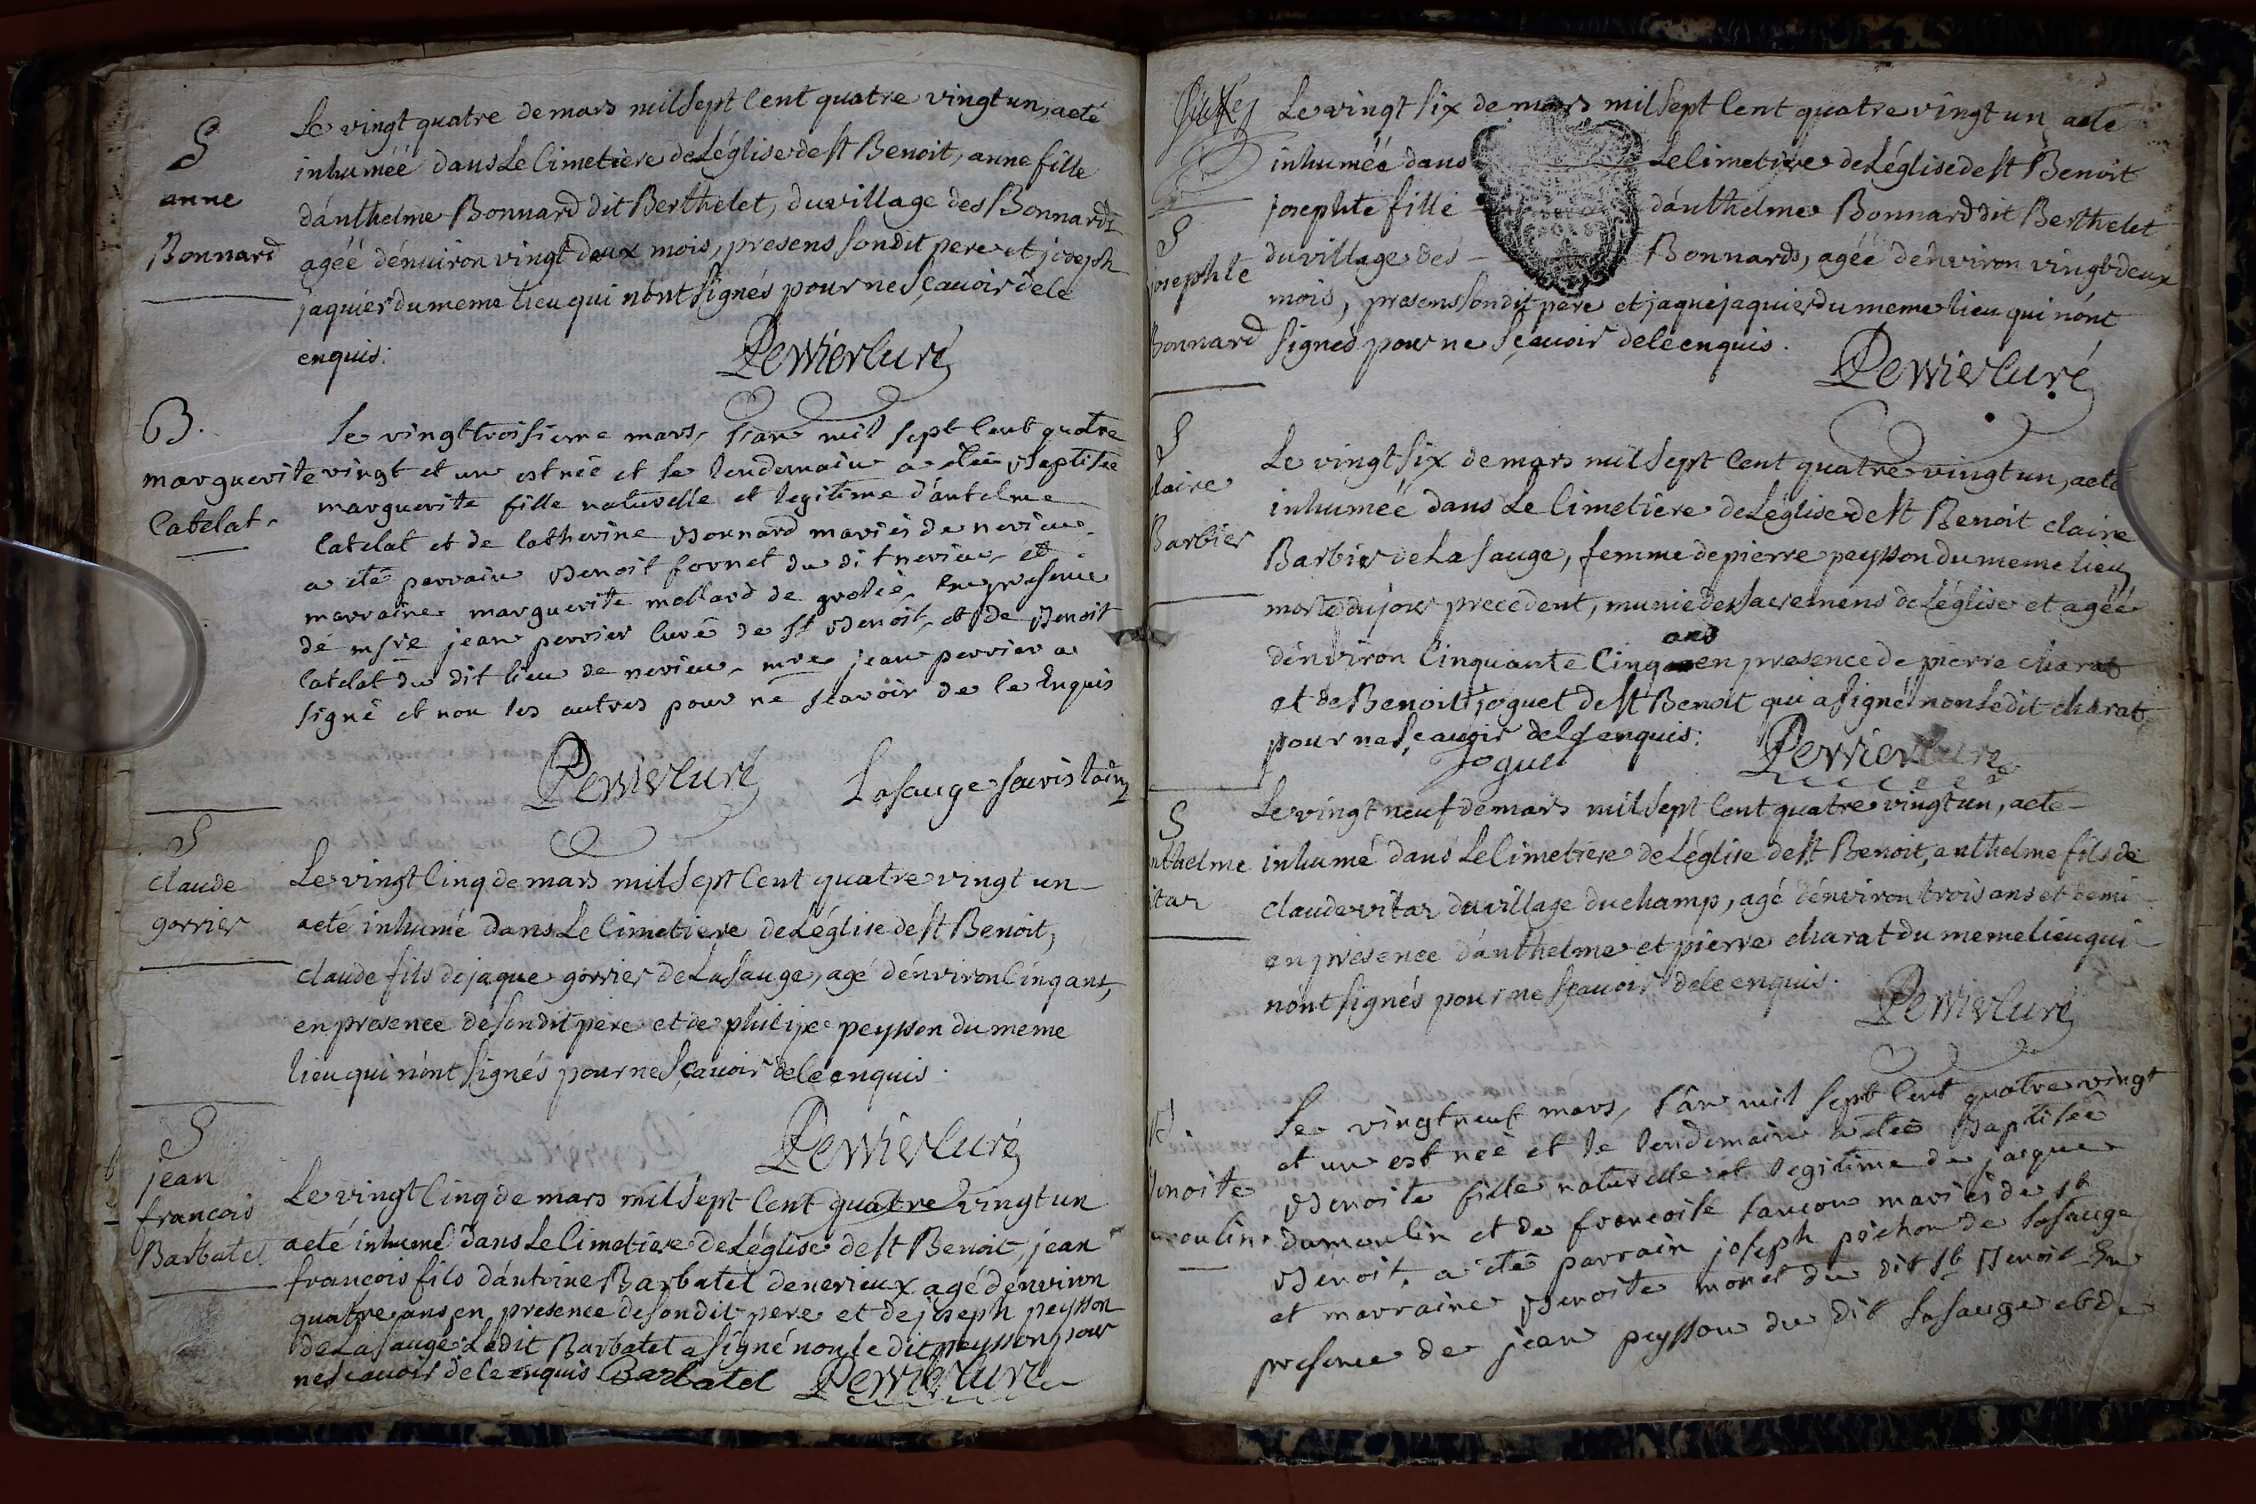 S
anne
Bonnard
Le vingt quatre de mars mil sept Cent quatre vingt un, a eté
inhuméé dans Le Cimetiere de L'église de st Benoit, anne fille
d'anthelme Bonnard dit Berthelet, du village des Bonnards
agéé d'énuiron vingt deux mois, presens sondit pere et joseph
jaquier du meme lieu qui n'ont signés pour ne sçauoir de le
enquis.
Perrier Curé
B.
marguerite
Catelat.
Le vingt troisieme mars, l'an mil sept Cent quatre
vingt et un est née et le lendemain a etée Baptisée
marguerite fille naturelle et legitime d'antelme
Catelat et de Catherine Bonnard mariés de nerieu
a eté parrain Benoit fornet du dit nerieu, et
marraine marguerite mollard de grolée, En presence
de msre jean perrier Curé de St Benoit, et de Benoit
Catelat du dit lieu de nerieu, mre jean perrier a
signé et non les autres pour ne scavoir de ce Enquis
Perrier Curé
Lasauge
S
claude
gorrier
Le vingt Cinq de mars mil sept Cent quatre vingt un
a eté inhumé dans Le Cimetiere de L'église de st Benoit,
claude fils de jaque gorrier de La sauge, agé d'énviron Cinq ans,
en presence de son dit pere et de philipe peysson du meme
lieu qui n'ont signés pour ne sçauoir de le enquis.
Perrier Curé
S
jean
francois
Barbatel
Le vingt Cinq de mars mil sept Cent quatre vingt un
a eté inhumé dans Le Cimetiere de L'église de st Benoit, jean
françois fils d'antoine Barbatel de nerieux agé d'énviron
quatre ans en presence de son dit pere et de joseph peysson
de La sauge Ledit Barbatel a signé non le dit peysson pour
ne sçauoir de le enquis Barbatel Perrier Curé
Le vingt six de mars mil sept Cent quatre vingt un a eté
inhuméé dans Le Cimetiere de L'église de st Benoit
josephte fille d'anthelme Bonnard dit Berthelet
du village des Bonnards, agéé d'énviron vingt deux
mois, presens son dit pere et jaque jaquier du meme lieu qui n'ont
signés pour ne sçauoir de le enquis.
Perrier Curé
S
josephte
Bonnard
S
Claire
Barbier
Le vingt six de mars mil sept Cent quatre vingt un, a eté
inhuméé dans Le Cimetiere de L'église de st Benoit claire
Barbier de La sauge, femme de pierre peysson du meme lieu
morte du jour precedent, munie des sacremens de L'église et agéé
d'énviron Cinquante Cinq ans en presence de pierre charat
et de Benoit joguet de st Benoit qui a signé non Ledit charat
pour ne sçauoir de le enquis.
joguet Perrier Curé
S
nthelme
itar
Le vingt neuf de mars mil sept Cent quatre vingt un, a eté
inhumé dans Le Cimetiere de L'église de st Benoit, anthelme fils de
claude vitar du village du champ, agé d'énviron trois ans et demi
en présence d'anthelme et pierre charat du meme lieu qui
n'ont signés pour ne sçauoir de le enquis.
Perrier Curé
B.
Benoite
umoulin
Le vingt neuf mars, l'an mil sept Cent quatre vingt
et un est née et le lendemain a etée Baptisée
Benoite fille naturelle et legitime de jacque
dumoulin et de francoise mariés de st
Benoit, a eté parrain joseph pichon de lasauge
et marraine Benoite moret du dit st Benoit En
presence de jean peysson du dit Lasauge et de